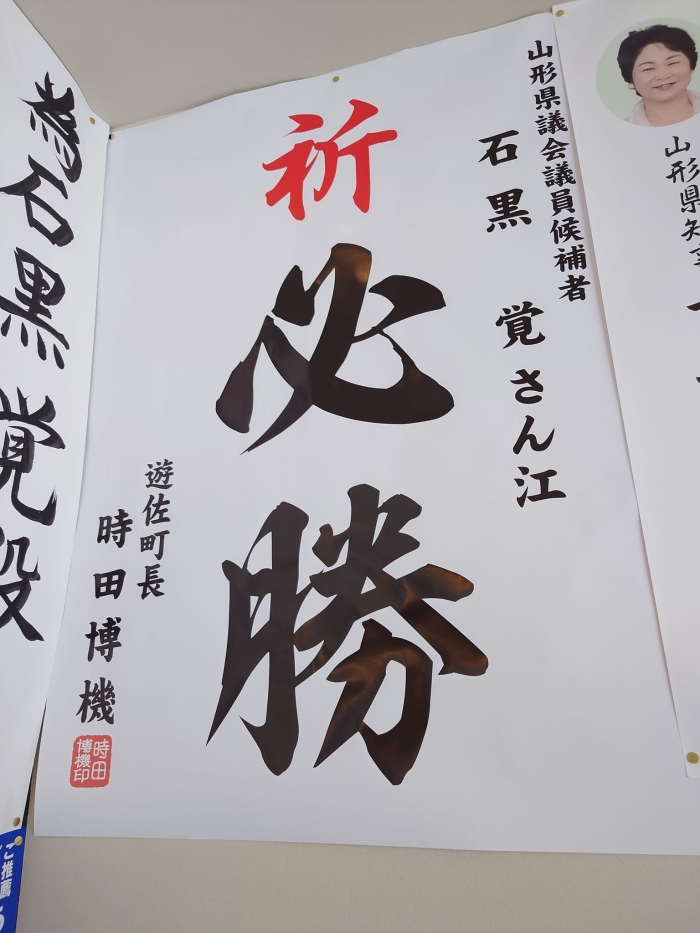 山形県知事
山形県議会議員候補者
石黒 覚さん江
祈
必勝
遊佐町長
時田博機
時田
博機印
為石黒覚殿
ご推薦